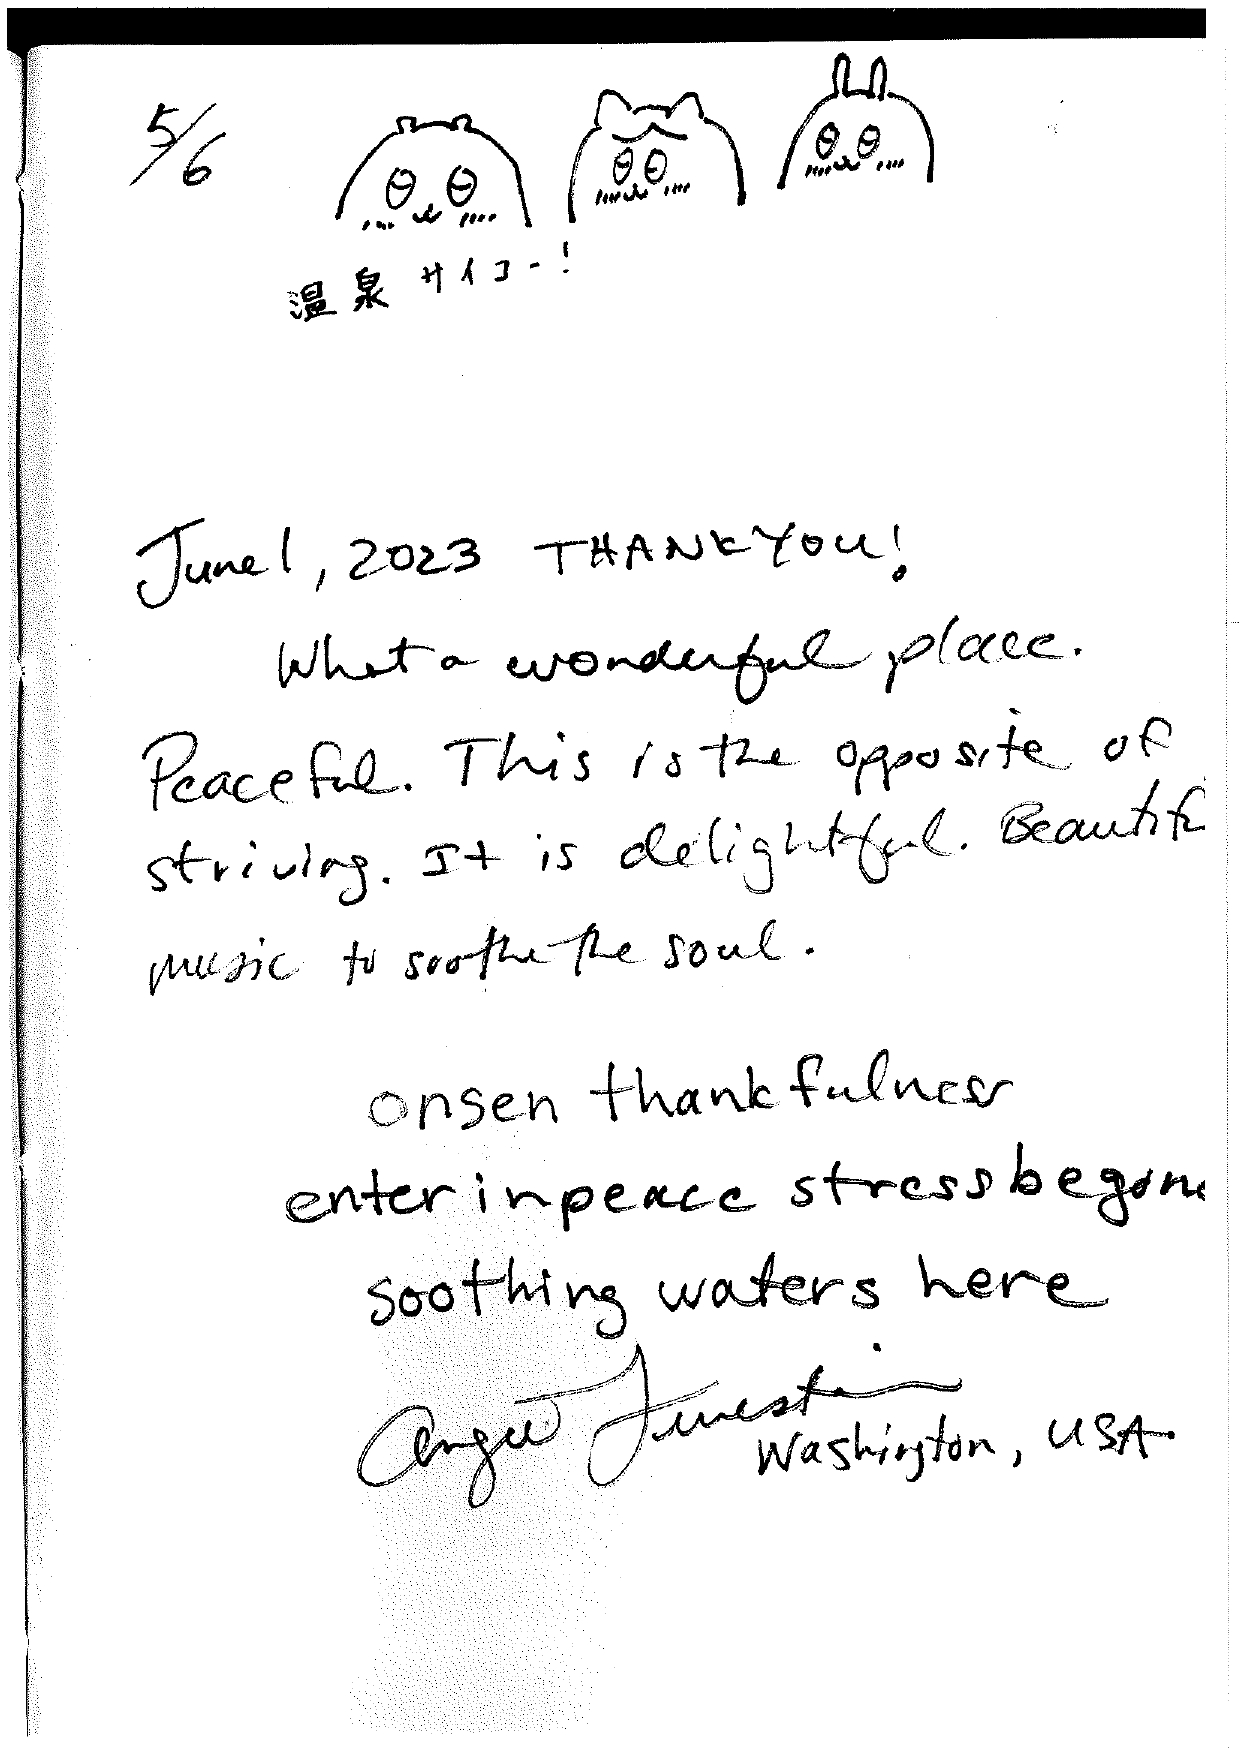 5/6
温泉サイコー!
June 1, 2023 THANK YOU!
What a wonderful place.
Peaceful. This is the opposite of
striving. It is delightful. Beautif
music to soothe the soul.
onsen thankfulness
enter in peace stress begon
soothing waters here
Angie
Washington, USA.